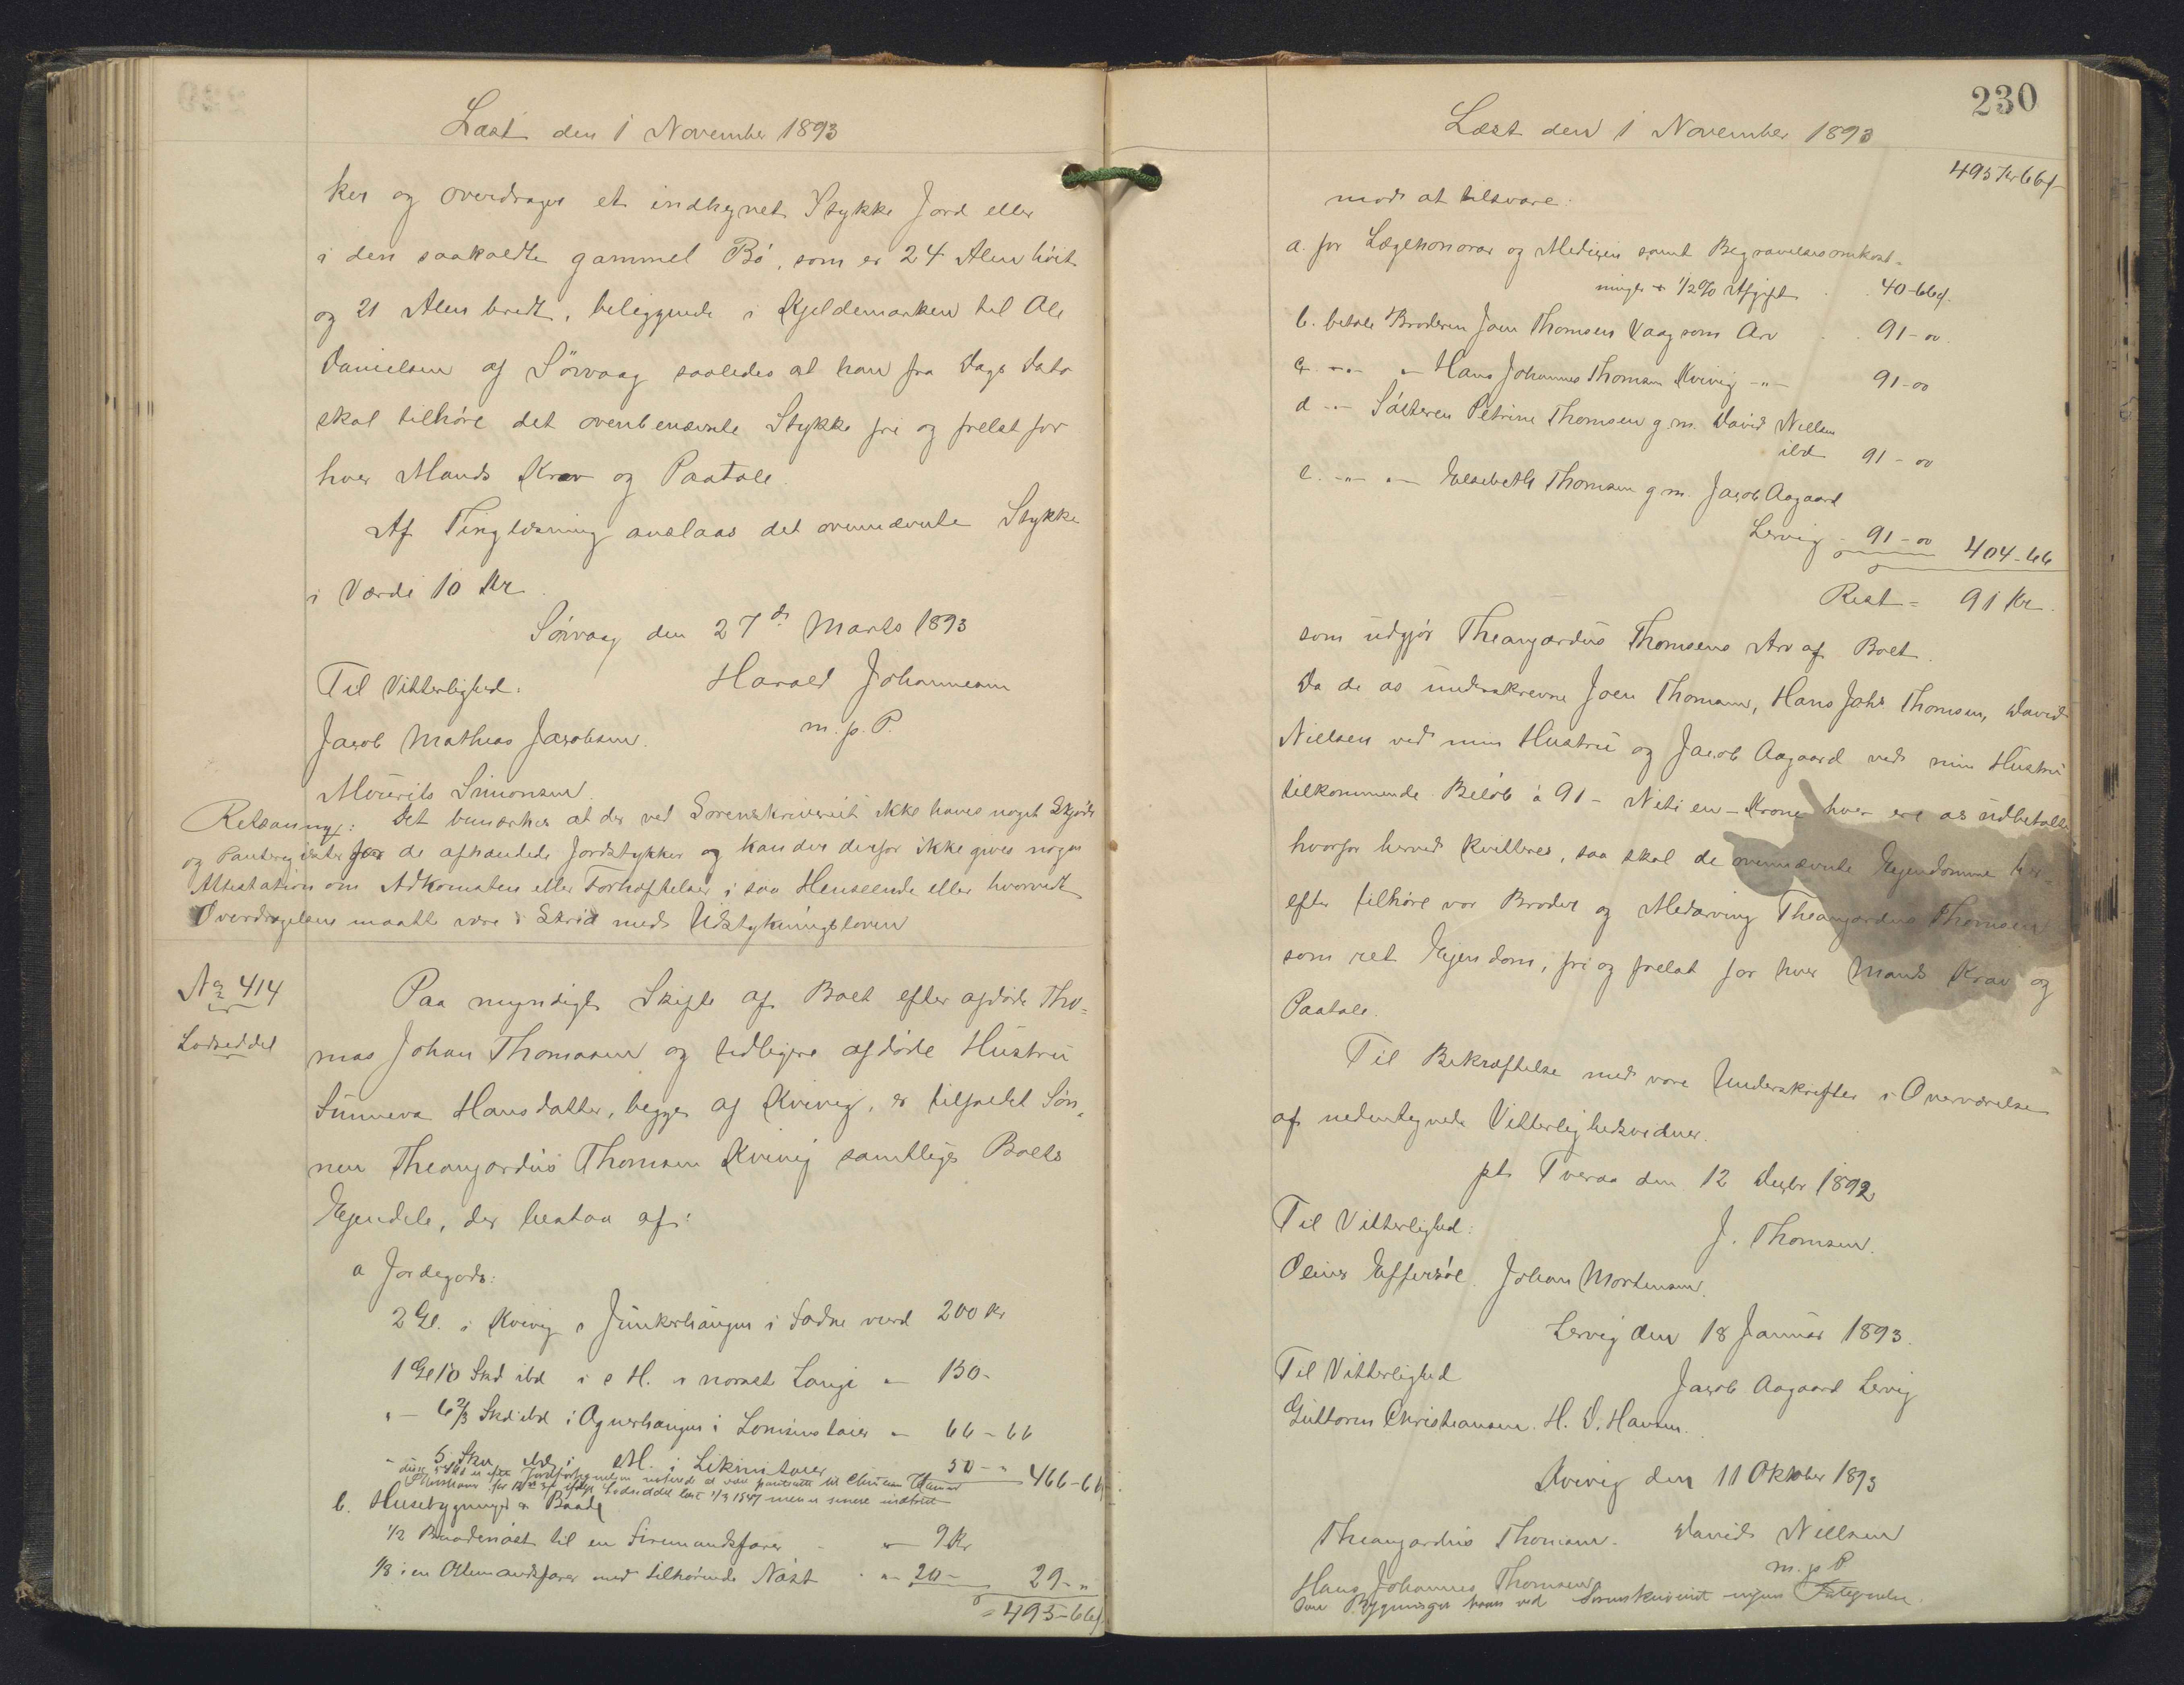 Læst den 1 November 1893
ker og overdrager et indhegnet Stykke Jord eller
i den saakaldte gammel Bö, som er 24 Alen höit
og 21 Alen bredt, beliggende i Kjeldemarken til Ole
Danielsen af Sörvaag saaledes at han fra Dags Dato
skal tilhöre det ovenbenævnte Stykke fri og frelst for
hver Mands Krav og Paatale.
Af Tinglæsning anslaas det ovennævnte Stykke
i Værdi 10 Kr.
Sörvaag den 27de Marts 1893
Til Vitterlighed: Harald Johannesen
Jacob Mathias Jacobsen. m. p. P.
Mourits Simonsen.
Retsanmg: Det bemærkes at der ved Sorenskriveriet ikke haves noget Skjöde
og Panteregister for de afhændede Jordstykker og kan der derfor ikke gives nogen
Attestation om Adkomsten eller Forhæftelser i saa Henseende eller hvorvidt
Overdragelsen maatte være i Strid med Udstykningsloven
No 414
Lodseddel
Paa myndigt Skifte af Boet efter afdöde Tho-
mas Johan Thomasen og tidligere afdöde Hustru
Sunneva Hansdatter, begge af Kvivig, er tilfaldet Sön-
nen Theangardus Thomsen Kvivig samtlige Boets
Ejendele, der bestaa af:
a Jordegods:
2 Gl. i Kvivig i Junkerhaugen i Sadne værd 200 Kr
1 Gl 10 Skd ibd i s H. i norast Langi " 150-
" - 6 2/3 Skd ibd i Ognerhaugen i " 66-66
" 5 Skd ibd i H. i " 50-" 466-66
b. Husebygninger & Baade
1/2 Baadenöst til en Firemandsfarer " 9 Kr
1/8 i en Ottemandsfarer med tilhörende Nöst " 20- 29-"
= 495-66
230
Læst den 1 November 1893
495 Kr 66
mod at tilsvare:
a. for Lægehonorar og Medicin samt Begravelsesomkost-
ninger & 1/2 % Afgift 40-66
b. betale Broderen Joen Thomsen Vaag som Arv 91-00
c. -"- " Hans Johannes Thomsen Kvivig -"- 91-00
d -"- Söstren Petrine Thomsen g. m. David Nielsen
ibd 91-00
e. -"- " Elsebeth Thomsen g m. Jacob Aagaard
Lervig 91-00 404-66
Rest = 91 Kr.
som udgjör Theangardus Thomsens Arv af Boet.
Da de os underskrevne Joen Thomsen, Hans Johs Thomsen, David
Nielsen ved min Hustru og Jacob Aagaard ved min Hustru
tilkommende Belöb à 91 - Niti en - Krone hver ere os udbetalte
hvorfor herved kvitteres, saa skal de ovennævnte Ejendomme her-
efter tilhöre vor Broder og Medarving Theangardus Thomsen
som ret Ejendom, fri og frelst for hver Mands Krav og
Paatale.
Til Bekræftelse med vore Underskrifter i Overværelse
af nedentegnede Vitterlighedsvidner.
pt Tveraa den 12 Decbr 1892
Til Vitterlighed: J. Thomsen.
Oliver Effersöe. Johan Mortensen.
Lervig den 18 Januar 1893.
Til Vitterlighed Jacob Aagaard Lervig
Guttorm Christiansen. H. D. Hansen.
Kvivig den 11 Oktober 1893
Theangardus Thomsen. David Nielsen
m. p P
Hans Johannes Thomsen
Bygninger haves ved Sorenskriveriet ingen